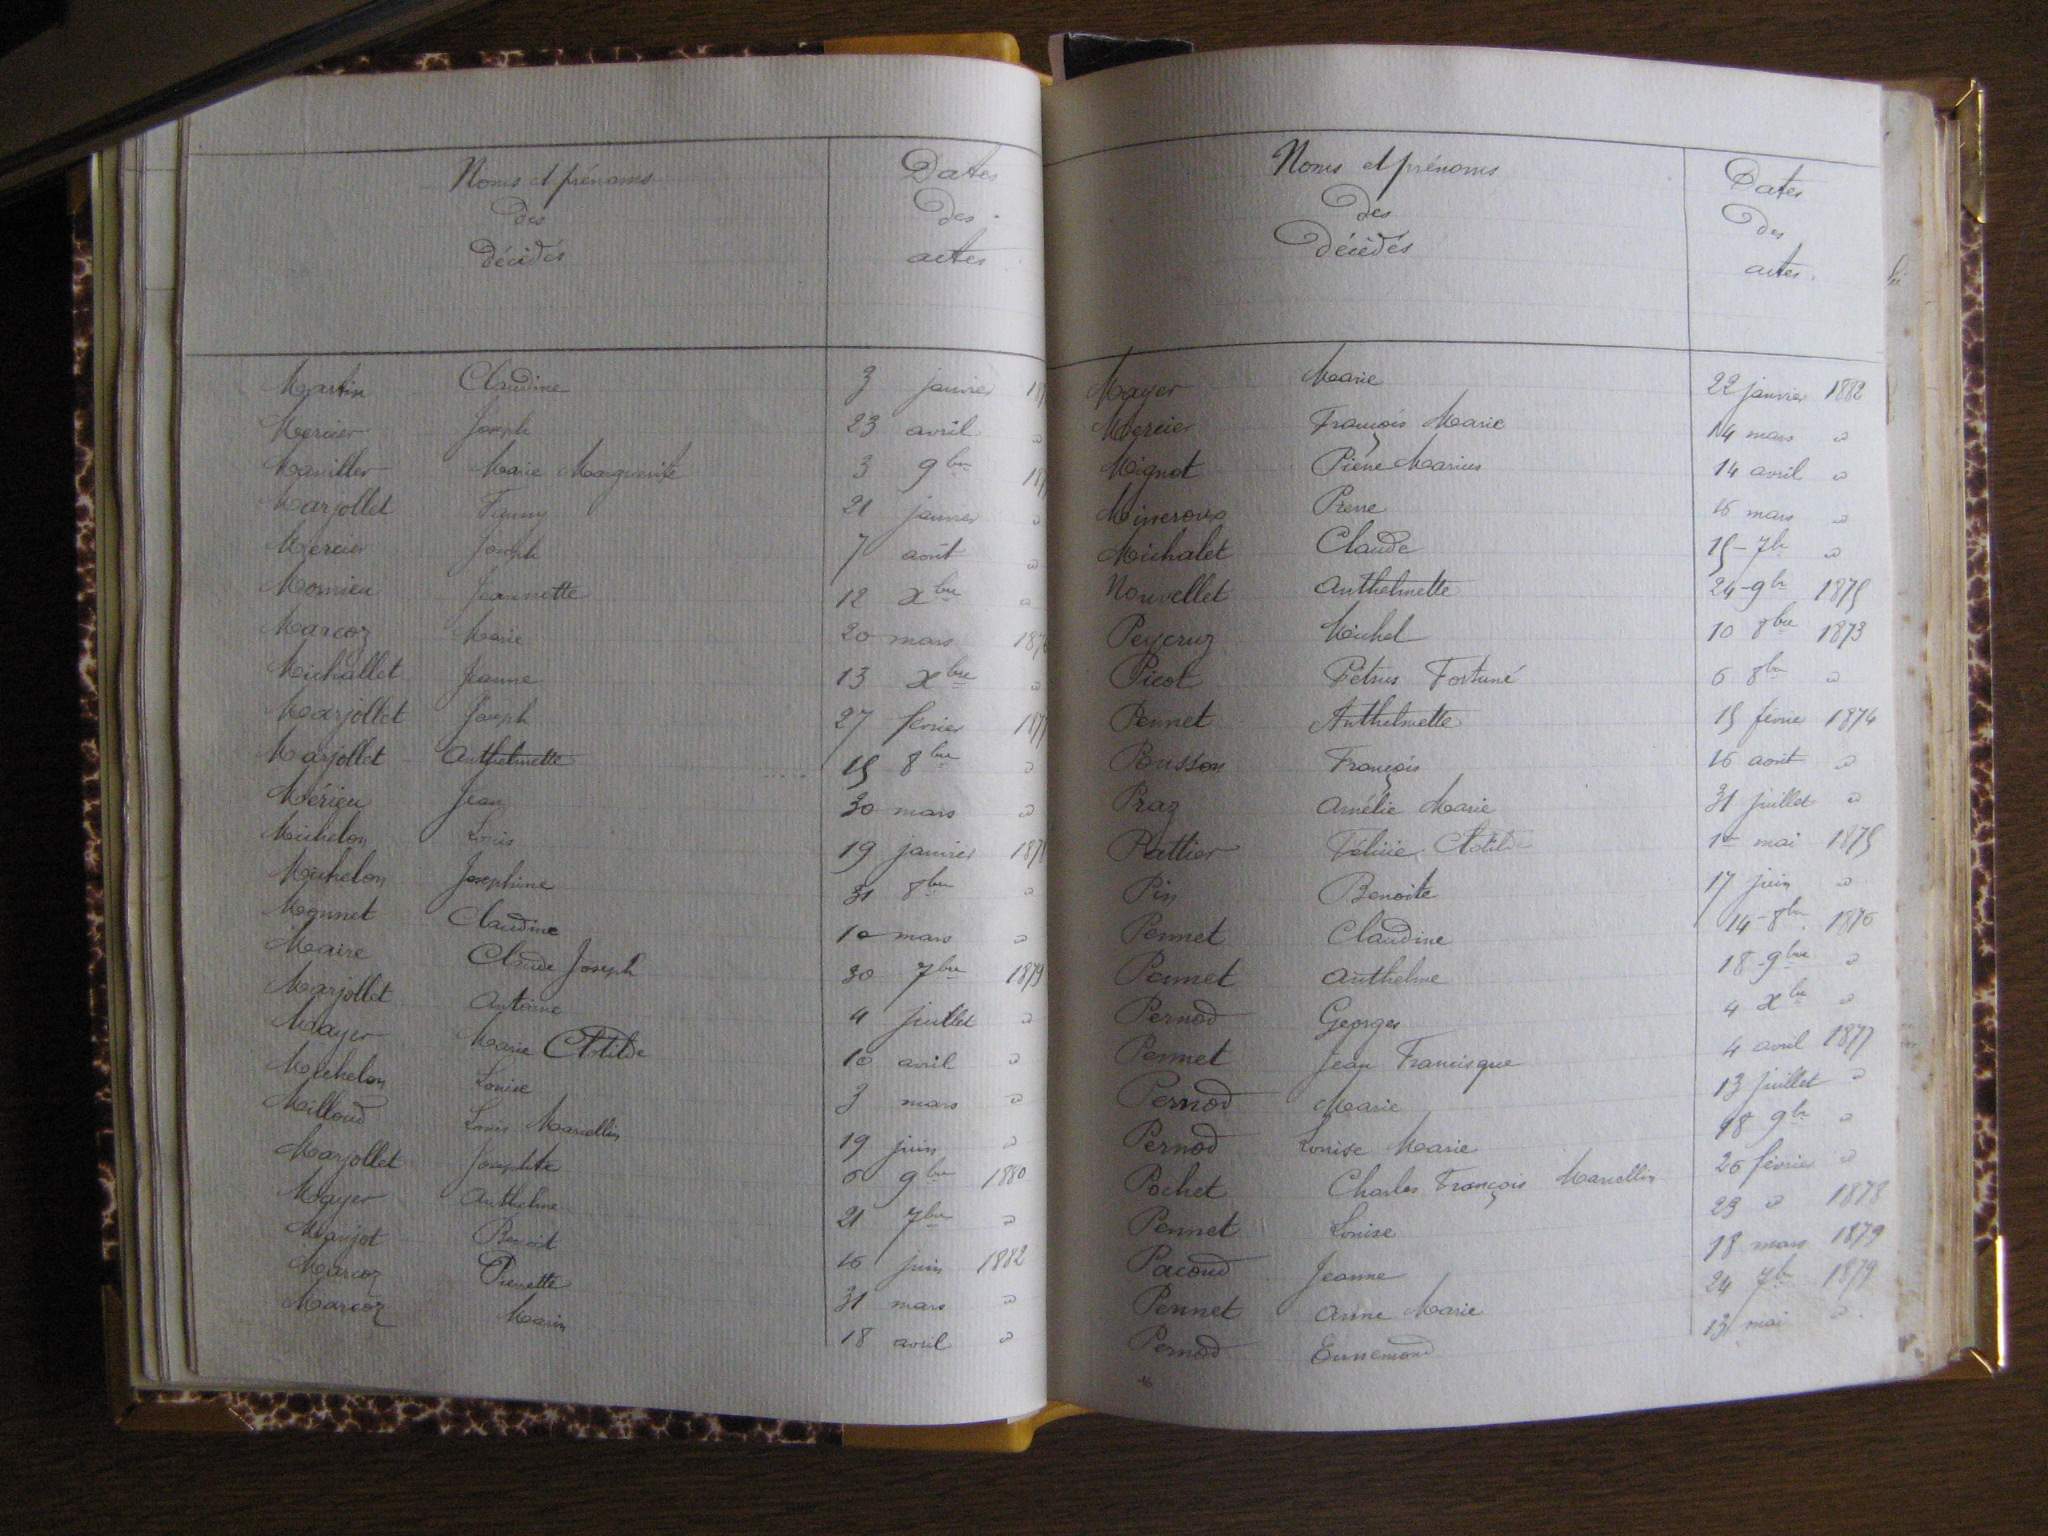 Noms et prénoms
des
décédés
Dates
des
actes
Martin Claudine 3 janvier
Mercier Joseph 23 avril "
Maviller Marie Marguerite 3 9bre
Marjollet Fanny 21 janvier "
Mercier Joseph 7 août "
Momieu Jeannette 12 xbre "
Marcoz Marie 20 mars 1876
Michallet Jeanne 13 xbre "
Marjollet Joseph 27 février 1877
Marjollet Anthelmette 15 8bre "
Mérieu Jean 30 mars "
Michelon Louis 19 janvier 1878
Michelon Josephine 31 8bre "
Monnet Claudine 10 mars "
Maire Claude Joseph 30 7bre 1879
Marjollet Antoine 4 juillet "
Mayer Marie Clotilde 10 avril "
Michelon Louise 3 mars "
Milloud Louis Marcellin 19 juin "
Marjollet Josephte 6 9bre 1880
Mayer Anthelme 21 7bre "
Manjot Benoit 16 juin 1882
Marcoz Pierrette 31 mars "
Marcoz Marin 18 avril "
Noms et prénoms
des
décédés
Dates
des
actes.
Mayer Marie 22 janvier 1882
Mercier François Marie 14 mars "
Mignot Pierre Marius 14 avril "
Pierre 16 mars "
Michalet Claude 15 - 7br "
Nouvellet Anthelmette 24 - 9br 1875
Peycruz Michel 10 8bre 1873
Picot Pétrus Fortuné 6 8bre "
Pennet Anthelmette 15 février 1874
Pousson François 16 août "
Praz Amélie Marie 31 juillet "
Rattier Félicie Clotilde 1er mai 1875
Pin Benoite 17 juin "
Pennet Claudine 14 - 8bre 1876
Pennet Anthelme 18 - 9bre "
Pernod Georges 4 xbre "
Pennet Jean Francisque 4 avril 1877
Pernod Marie 13 juillet "
Pernod Louise Marie 18 9br "
Pochet Charles François Marcellin 26 février "
Pennet Louise 23 " 1878
Pacoud Jeanne 18 mars 1879
Pennet Anne Marie 24 7br 1879
Pernod Ennemond 13 mai "